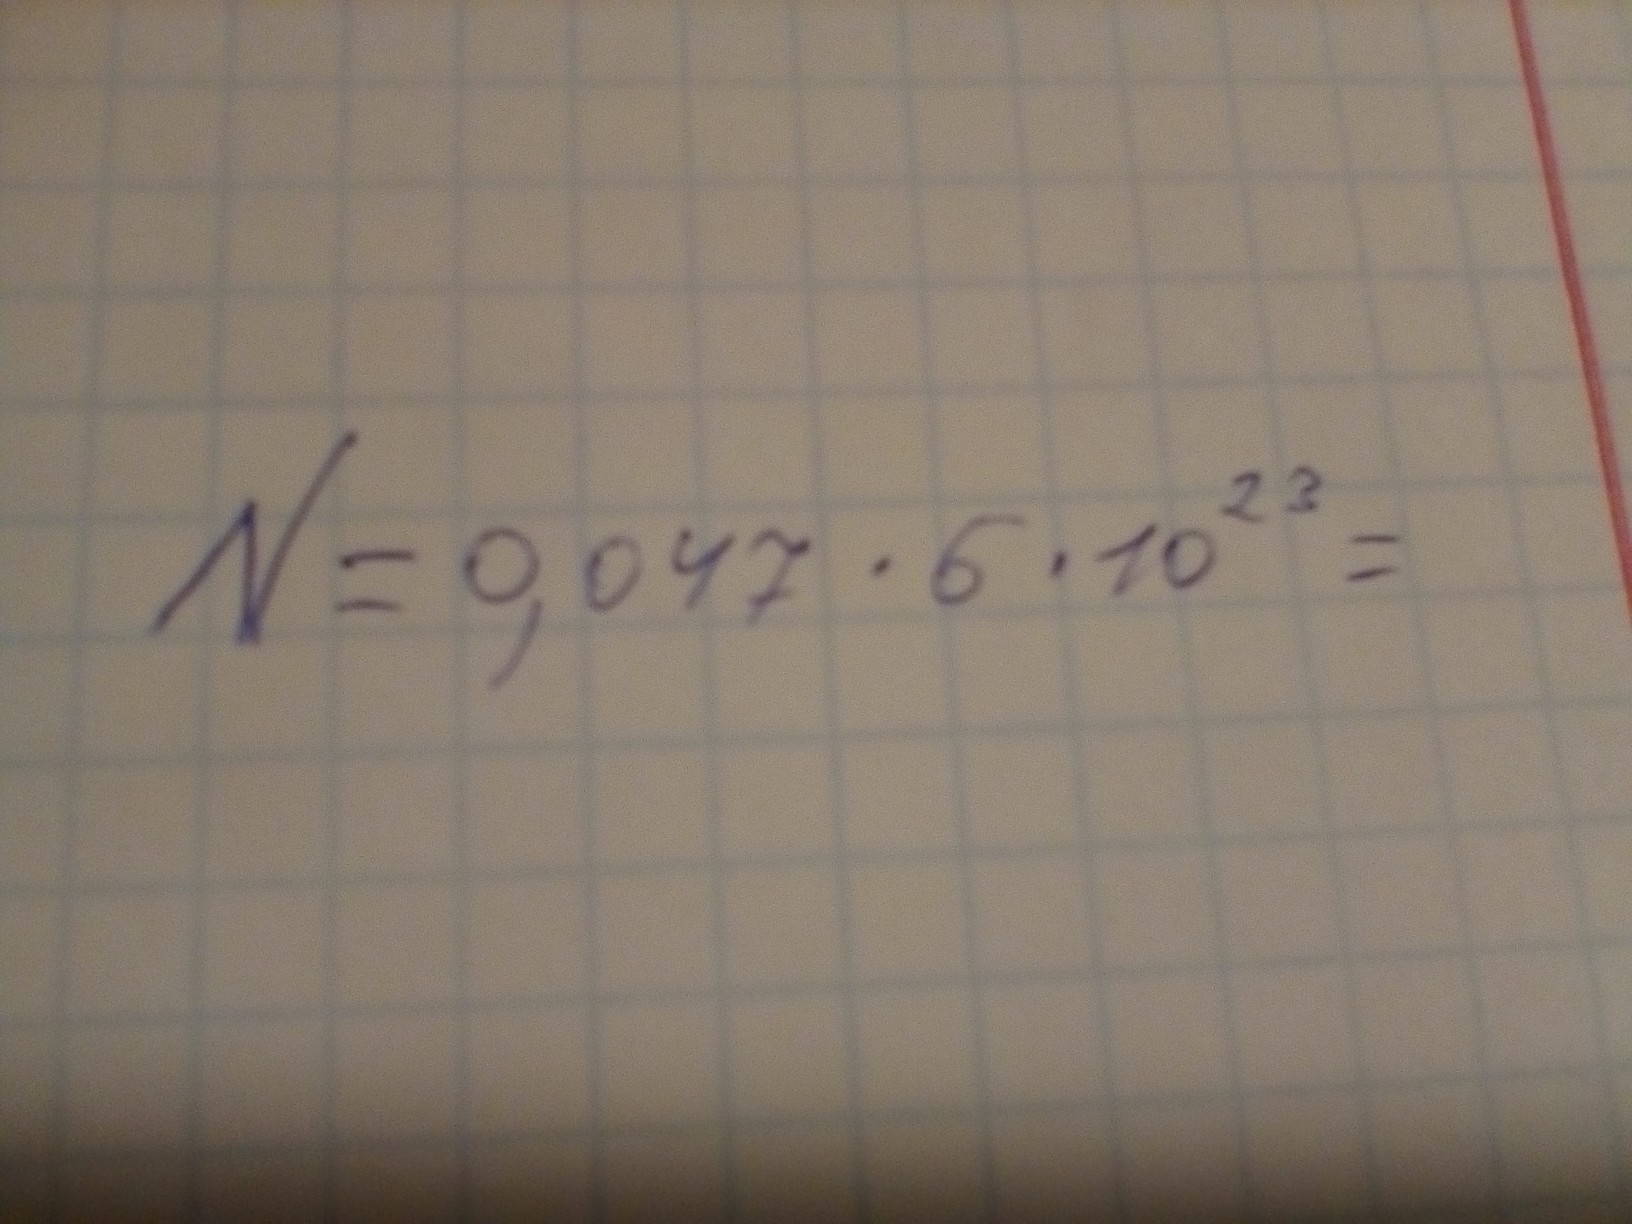 N = 0,047 · 6 · 10²³ =